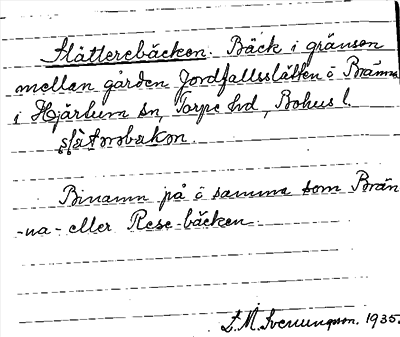 Slätterebäcken. Bäck i gränsen
mellan gården Jordfallsslätten o Bränna
i Hjärtum sn, Torpe hd, Bohus l.
Binamn på ö samma som Brän
-na- eller Rese-bäcken.
L. M. Svenungsson. 1935.